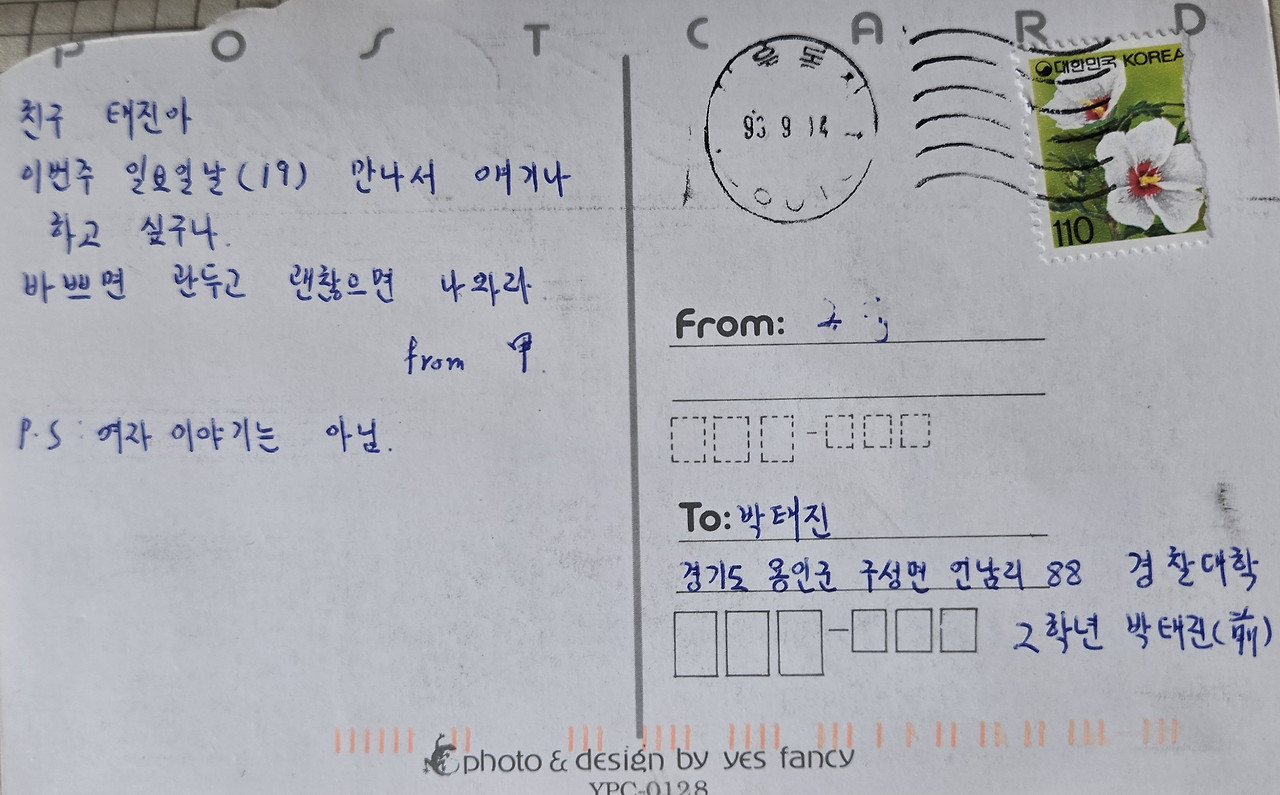 POST CARD
친구 태진아
이번주 일요일날(19) 만나서 얘기나
하고 싶구나.
바쁘면 관두고 괜찮으면 나와라
from
P.S : 여자 이야기는 아님.
93 9 14
대한민국 KOREA
110
From:
To: 박태진
경기도 용인군 구성면 언남리 88 경찰대학
2학년 박태진(
photo & design by yes fancy
YPC-0128